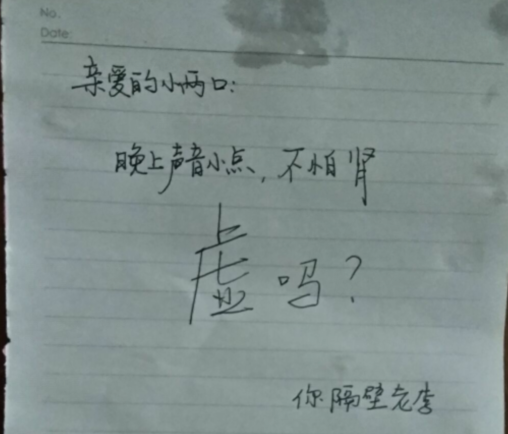 No.
Date:
亲爱的小两口:
晚上声音小点,不怕肾
虚吗?
你隔壁老李